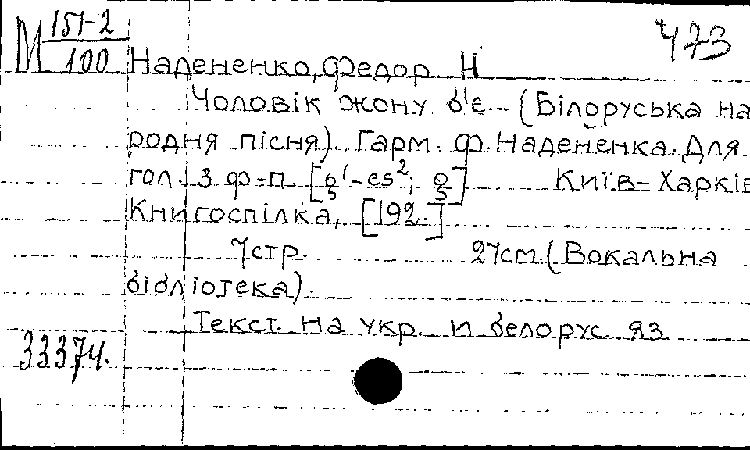 М 151-2
100
473
Надененко, Федор Н
Чоловік жону б'є (Білоруська на
родня пісня). Гарм. Ф. Надененка. Для
гол. з ф-п. [
Київ-Харків
Книгоспілка, [192.]
7стр. 27см (Вокальна
бібліотека).
Текст на укр. и белорус яз
33374.